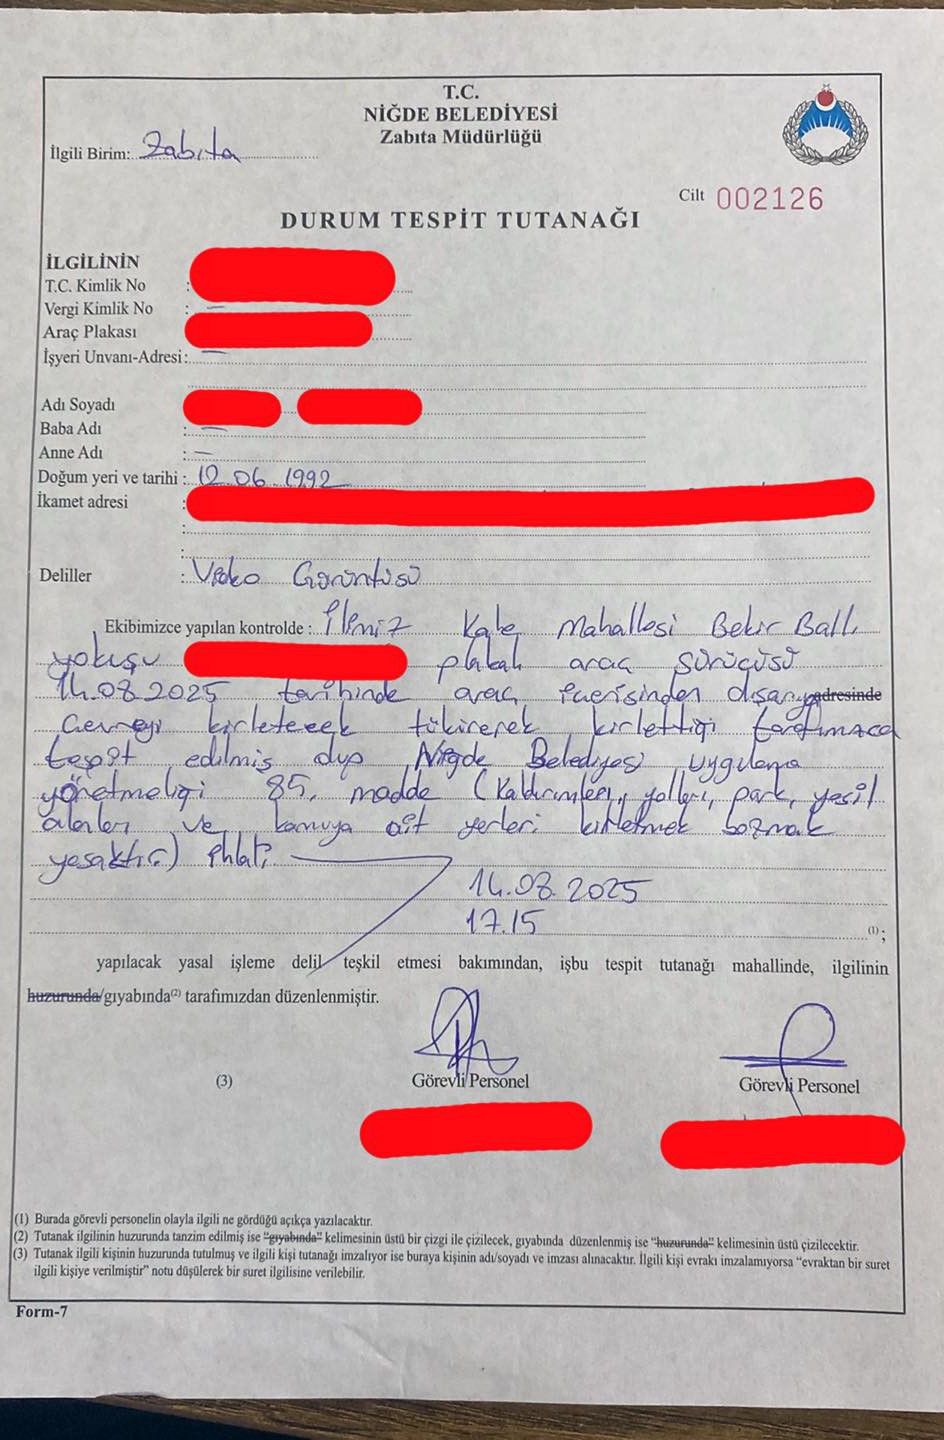 T.C.
NİĞDE BELEDİYESİ
Zabıta Müdürlüğü
İlgili Birim: Zabıta
Cilt 002126
DURUM TESPİT TUTANAĞI
İLGİLİNİN
T.C. Kimlik No :
Vergi Kimlik No : —
Araç Plakası
İşyeri Unvanı-Adresi: —
Adı Soyadı
Baba Adı : —
Anne Adı : —
Doğum yeri ve tarihi : 12.06.1992
İkamet adresi :
:
:
Deliller : Video Görüntüsü
Ekibimizce yapılan kontrolde : İlimiz Kale Mahallesi Bekir Ballı
yokuşu plakalı araç sürücüsü
14.08.2025 tarihinde araç içerisinden dışarıya adresinde
Çevreyi kirletecek tükürerek kirlettiği tarafımızca
tespit edilmiş olup Niğde Belediyesi uygulama
yönetmeliği 85. madde (Kaldırımları, yolları, park, yeşil
alanları ve kamuya ait yerleri kirletmek bozmak
yasaktır.) ihlali
14.08.2025
17.15
(1) ;
yapılacak yasal işleme delil teşkil etmesi bakımından, işbu tespit tutanağı mahallinde, ilgilinin
huzurunda/gıyabında(2) tarafımızdan düzenlenmiştir.
(3) Görevli Personel Görevli Personel
(1) Burada görevli personelin olayla ilgili ne gördüğü açıkça yazılacaktır.
(2) Tutanak ilgilinin huzurunda tanzim edilmiş ise "gıyabında" kelimesinin üstü bir çizgi ile çizilecek, gıyabında düzenlenmiş ise "huzurunda" kelimesinin üstü çizilecektir.
(3) Tutanak ilgili kişinin huzurunda tutulmuş ve ilgili kişi tutanağı imzalıyor ise buraya kişinin adı/soyadı ve imzası alınacaktır. İlgili kişi evrakı imzalamıyorsa "evraktan bir suret
ilgili kişiye verilmiştir" notu düşülerek bir suret ilgilisine verilebilir.
Form-7